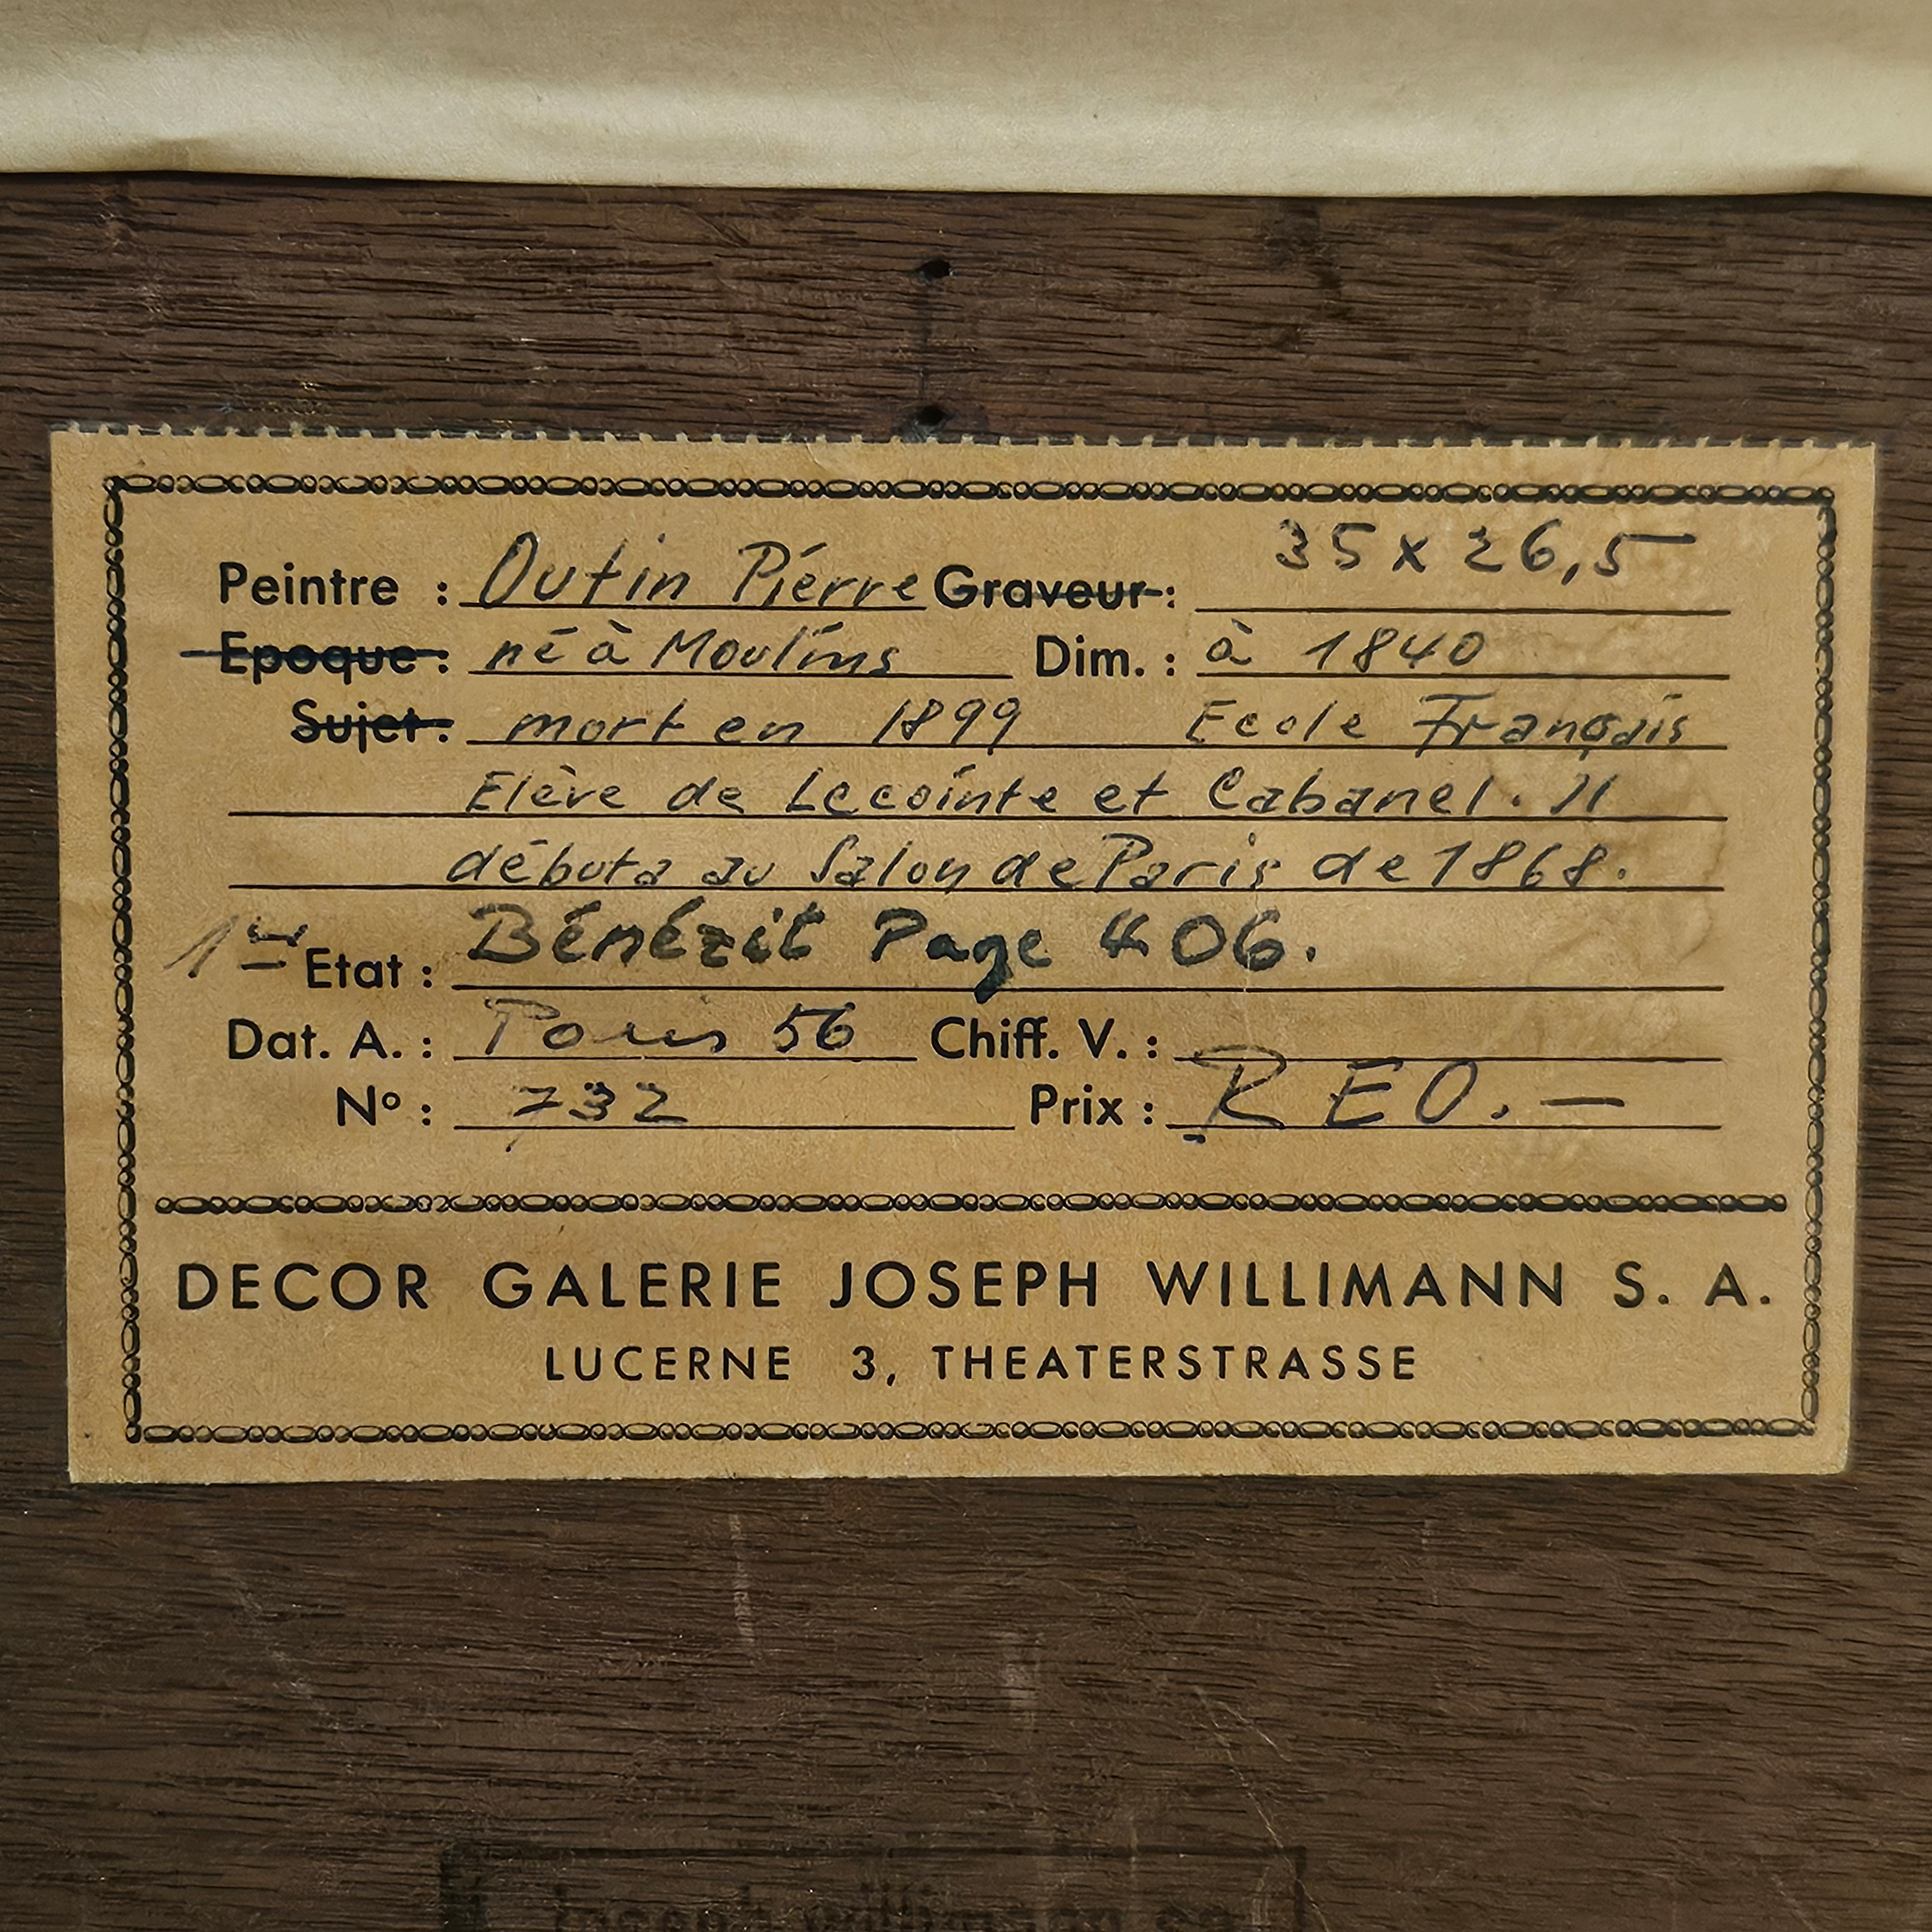 35 x 26,5
Peintre : Outin Pierre Graveur :
Epoque : né à Moulins Dim. : à 1840
Sujet : mort en 1899 Ecole Français
Elève de Lecointe et Cabanel. Il
débuta au Salon de Paris de 1868.
Etat : Bénézit Page 406.
Dat. A. : Paris 56 Chiff. V. :
Nº : 732 Prix : R E O. —
DECOR GALERIE JOSEPH WILLIMANN S. A.
LUCERNE 3, THEATERSTRASSE
joseph willimann sa